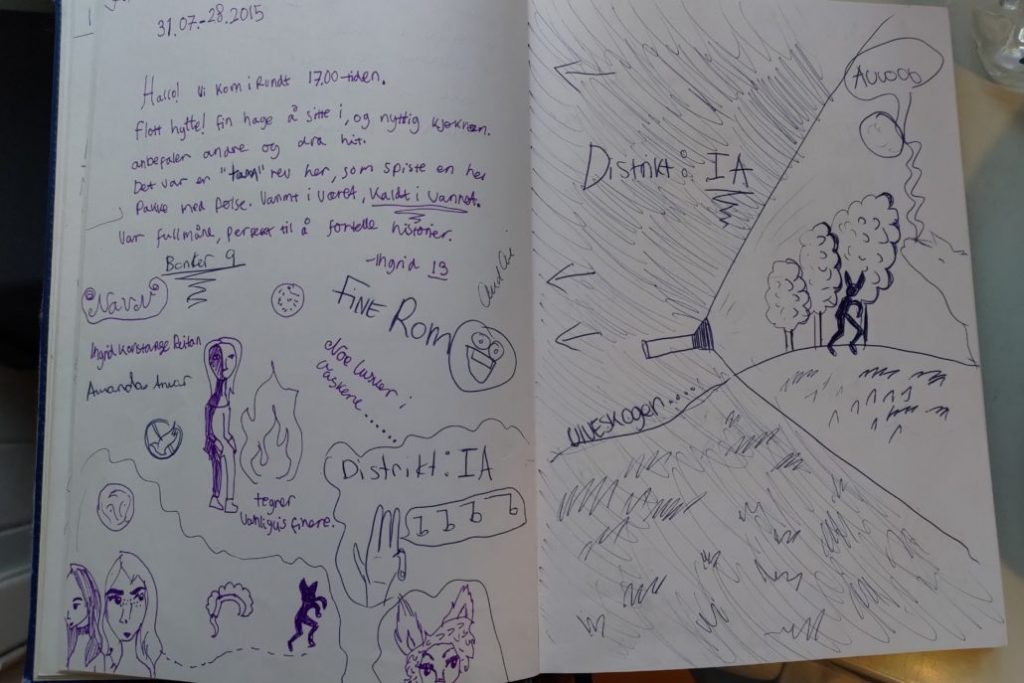 31.07.-28.2015
Hallo! Vi kom i rundt 17.00-tiden.
Flott hytte! Fin hage å sitte i, og nyttig kjøkken.
anbefaler andre og dra hit.
Det var en "tam" rev her, som spiste en hel
pakke med pølse. Varmt i været, Kaldt i vannet.
Var fullmåne, perfekt til å fortelle historier.
-Ingrid 13
Banker 9
NAVN
FINE ROM
Ingrid Korstange Reitan
Amanda Anvar
Noe lusker i
Buskene....
Distrikt: IA
tegner
Vanligvis finere.
Distrikt: IA
AUOOO
ULVESKOGEN.....